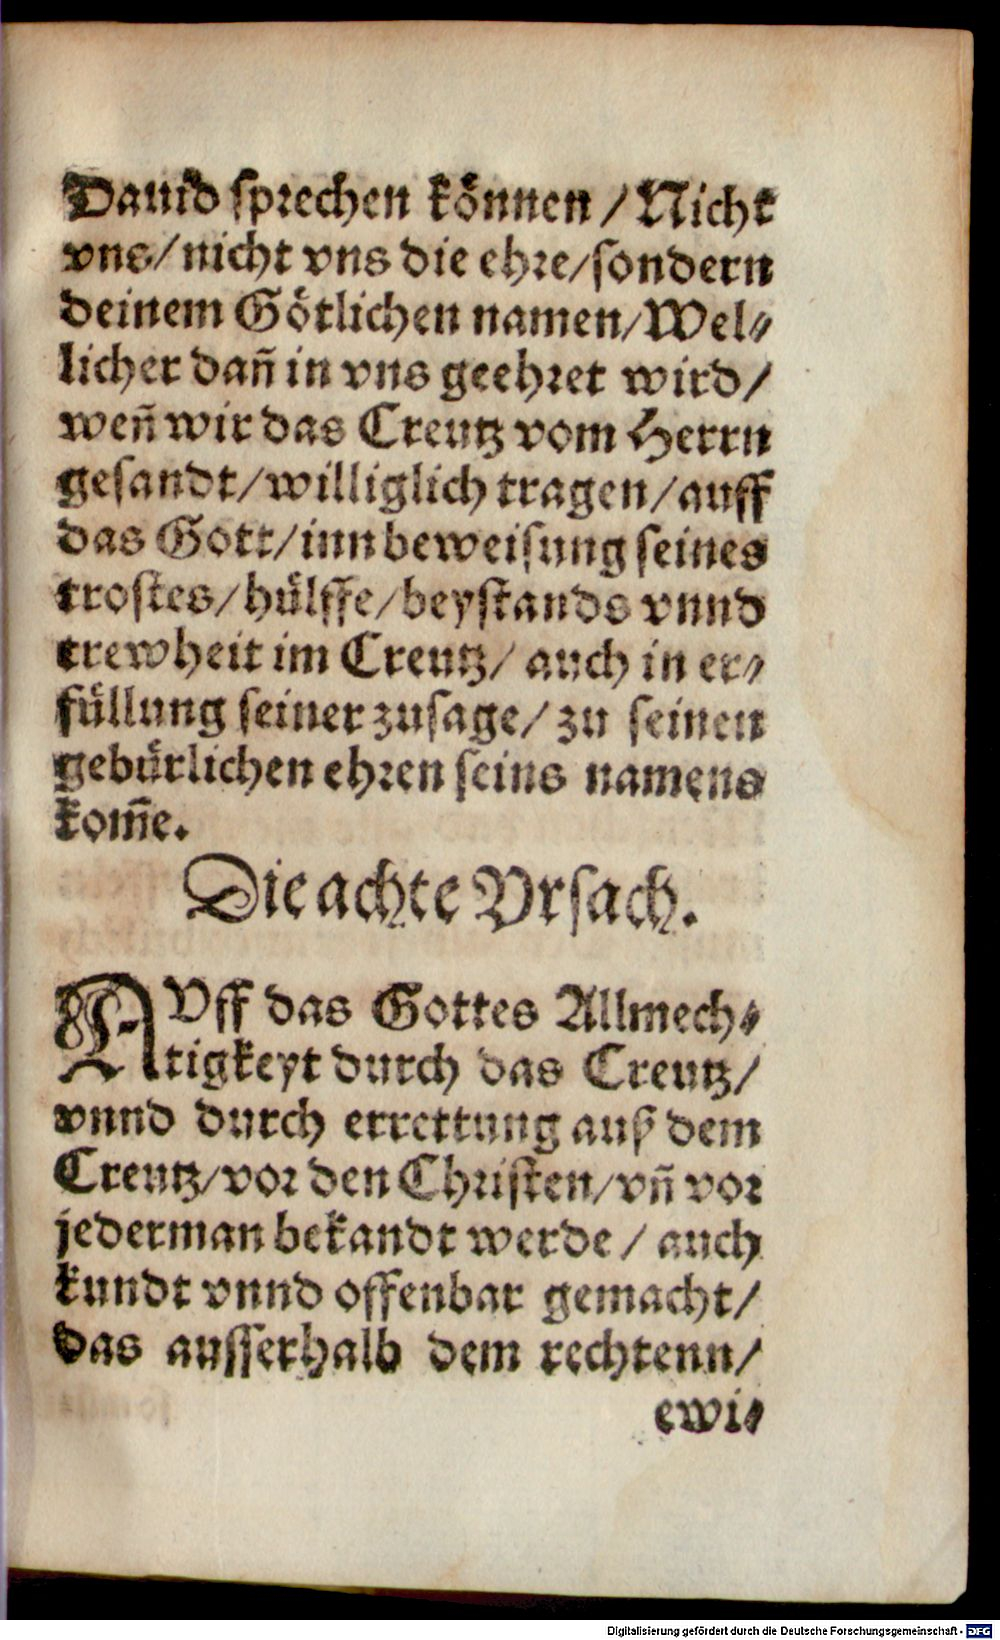 Dauid sprechen können / Nicht
vns / nicht vns die ehre / sondern
deinem Götlichen namen / Wel⸗
licher dañ in vns geehret wird /
weñ wir das Creutz vom Herrn
gesandt / williglich tragen / auff
das Gott / inn beweisung seines
trostes / hülffe / beystands vnnd
trewheit im Creutz / auch in er⸗
füllung seiner zusage / zu seinen
gebürlichen ehren seins namens
kom̄e.
Die achte Vrsach.
AVff das Gottes Allmech⸗
tigkeyt durch das Creutz /
vnnd durch errettung auß dem
Creutz / vor den Christen / vñ vor
jederman bekandt werde / auch
kundt vnnd offenbar gemacht /
das ausserhalb dem rechtenn /
ewi⸗
Digitalisierung gefördert durch die Deutsche Forschungsgemeinschaft - DFG